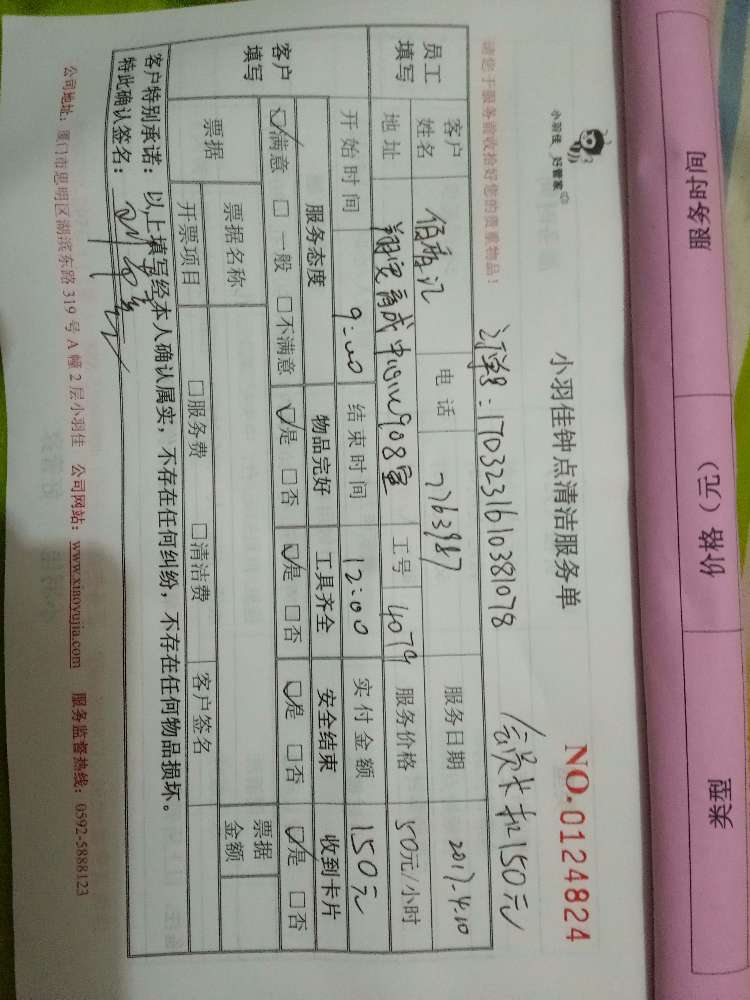 服务时间 价格（元） 类型
小羽佳 好管家
小羽佳钟点清洁服务单
NO.0124824
请您于服务前收拾好您的贵重物品！
订单号：1703231610381078
会员卡扣150元
员工填写
客户姓名 佰 汇 电话 7763987 服务日期 2017.4.10
地址 翔安商 中心 908室 工号 4079 服务价格 50元/小时
开始时间 9:00 结束时间 12:00 实付金额 150元
客户填写
服务态度 物品完好 工具齐全 安全结束 收到卡片
☑满意 □一般 □不满意 ☑是 □否 ☑是 □否 ☑是 □否 ☑是 □否
票据 票据名称 □服务费 □清洁费 票据金额
开票项目 客户签名
客户特别承诺：以上填写经本人确认属实，不存在任何纠纷，不存在任何物品损坏。
特此确认签名：
公司地址：厦门市思明区湖滨东路319号A幢2层小羽佳 公司网站：www.xiaoyujia.com 服务监督热线：0592-5888123